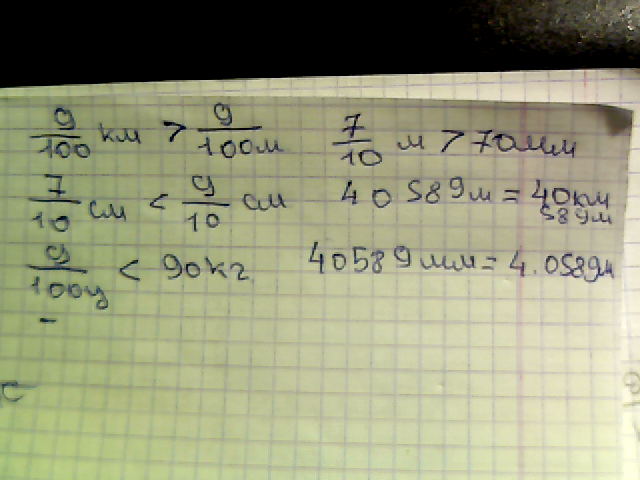 9/100 км > 9/100 м    7/10 м > 70 мм
7/10 см < 9/10 см    40589м = 40км 589м
9/100 ц < 90кг    40589мм = 4.0589м